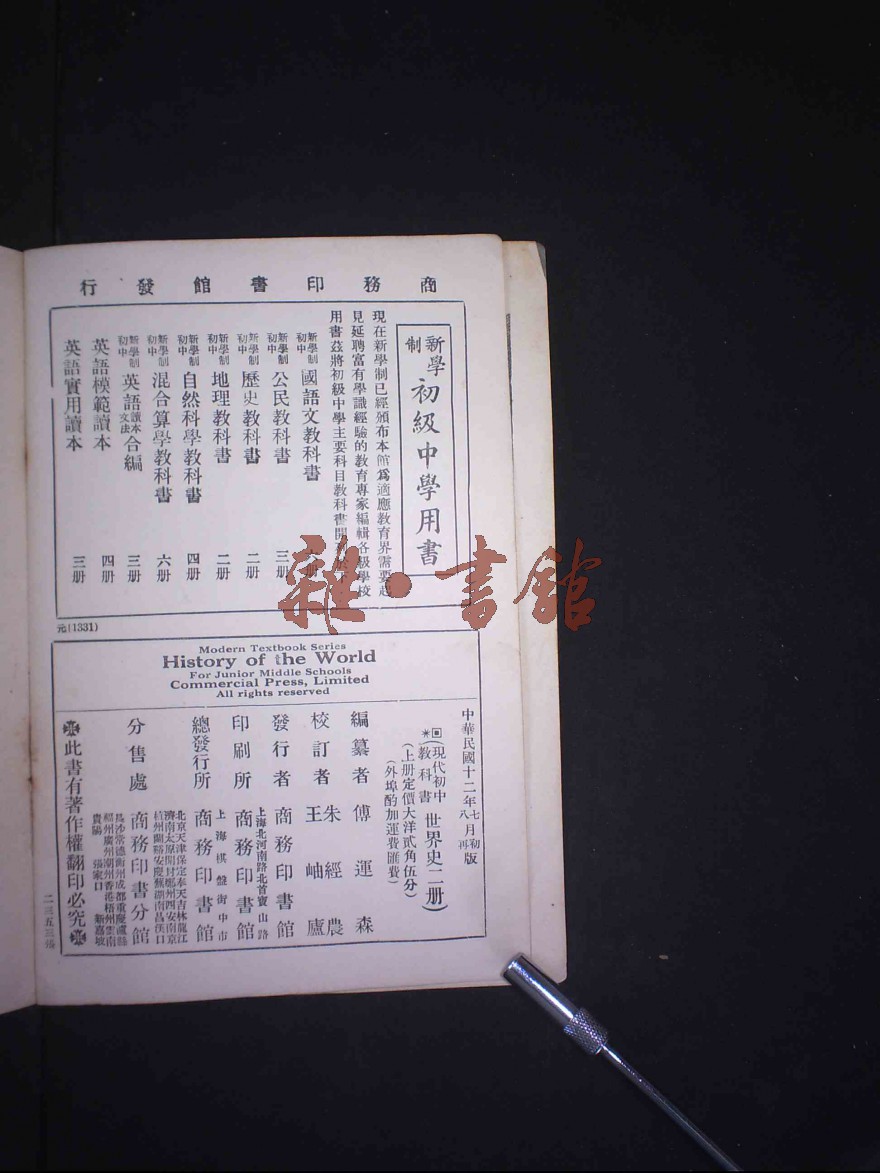 商務印書館發行
新學制
初級中學用書
現在新學制已經頒布本館爲適應教育界需要起
見延聘富有學識經驗的教育專家編輯各級學校
用書茲將初級中學主要科目教科書開
新學制初中 國語文教科書 册
新學制初中 公民教科書 三册
新學制初中 歷史教科書 二册
新學制初中 地理教科書 二册
新學制初中 自然科學教科書 四册
新學制初中 混合算學教科書 六册
新學制初中 英語讀本文法合編 三册
英語模範讀本 四册
英語實用讀本 三册
元(1331)
Modern Textbook Series
History of the World
For Junior Middle Schools
Commercial Press, Limited
All rights reserved
中華民國十二年七月初版
八月再版
(現代初中教科書 世界史二册)
(上册定價大洋貳角伍分)
(外埠酌加運費匯費)
編纂者 傅運森
校訂者 朱經農
王岫廬
發行者 商務印書館
上海北河南路北首寶山路
印刷所 商務印書館
上海棋盤街中市
總發行所 商務印書館
北京天津保定奉天吉林龍江
濟南太原開封鄭州西安南京
杭州蘭谿安慶蕪湖南昌漢口
分售處 商務印書分館
長沙常德衡州成都重慶瀘縣
福州廣州潮州香港梧州雲南
貴陽 張家口 新嘉坡
此書有著作權翻印必究
二三五三
雜·書館